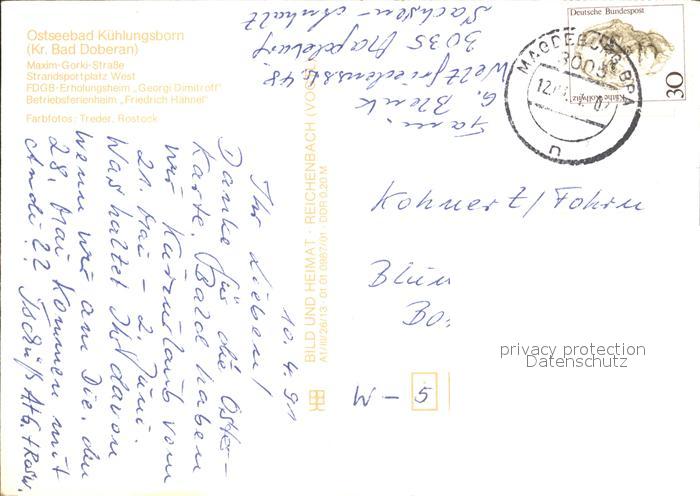 Ostseebad Kühlungsborn
(Kr. Bad Doberan)
Maxim-Gorki-Straße
Strandsportplatz West
FDGB-Erholungsheim „Georgi Dimitroff"
Betriebsferienheim „Friedrich Hähnel"
Farbfotos: Treder, Rostock
10.4.91
Ihr Lieben!
Danke für die Oster-
karte. Bald haben
wir Kurzurlaub vom
21. Mai - 2. Juni.
Was haltet Ihr davon
wenn wir am Die. den
28. Mai kommen mit
Andi?? Tschüß
BILD UND HEIMAT · REICHENBACH (VOGTL
A1/III/26/13 · 01 01 0967/01 · DDR 0,20 M
Fam.
G. Blenk
Weltfriedensstr. 48
3035 Magdeburg
Sachsen-Anhalt
Deutsche Bundespost
30
Käthe Kollwitz
MAGDEBURG
3005
12.
n
Kohnert/
W - 5
privacy protection
Datenschutz